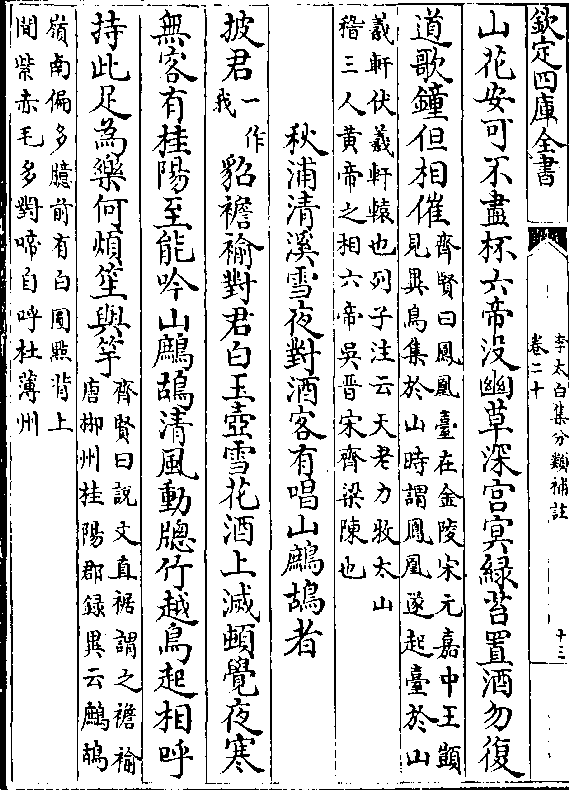 欽定四庫全書
李太白集分類補註
卷二十
十三
山花安可不盡杯六帝没幽草深宫冥緑苔置酒勿復
道歌鐘但相催
齊賢曰鳳凰臺在金陵宋元嘉中王顗
見異鳥集於山時謂鳳凰遂起臺於山
羲軒伏羲軒轅也列子注云天老力牧太山
稽三人黄帝之相六帝吳晉宋齊梁陳也
秋浦清溪雪夜對酒客有唱山鷓鴣者
披君
一作
我
貂襜褕對君白玉壺雪花酒上滅頓覺夜寒
無客有桂陽至能吟山鷓鴣清風動牕竹越鳥起相呼
持此足為樂何煩笙與竽
齊賢曰説文直裾謂之襜褕
唐郴州桂陽郡録異云鷓鴣
嶺南偏多臆前有白圓㸃背上
間紫赤毛多對啼自呼杜薄州